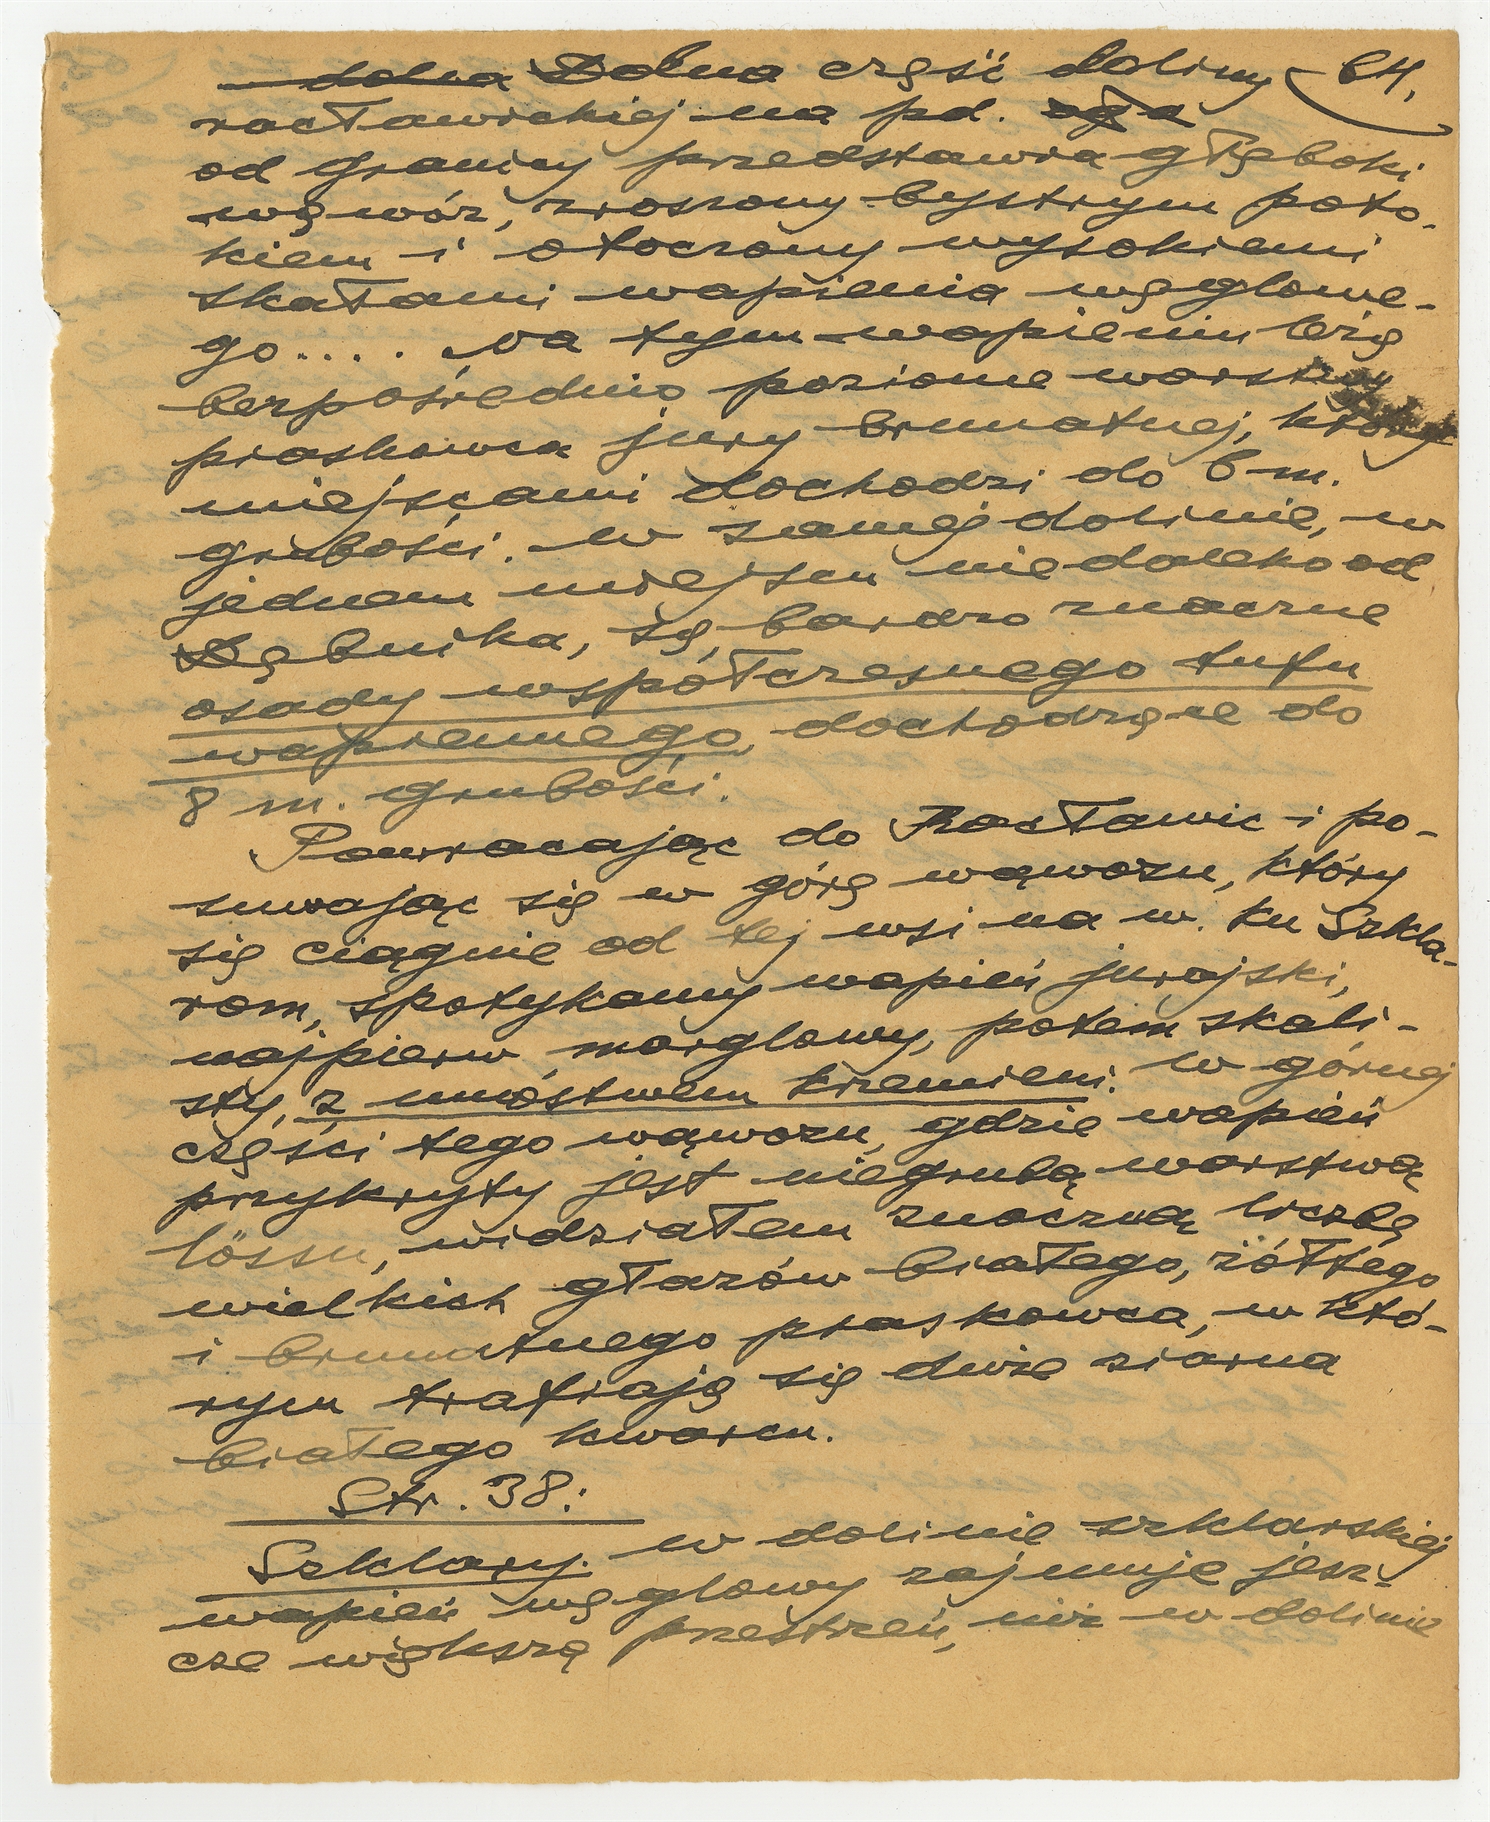 dolna Dolna część doliny 64.
racławickiej na pd.
od granicy przedstawia głęboki
wąwóz, zroszony bystrym poto-
kiem i otoczony wysokiemi
skałami wapienia węglowe-
go.... Na tym wapieniu leżą
bezpośrednio poziome warstwy
piaskowca jury brunatnej, który
miejscami dochodzi do 6 m.
grubości. W samej dolinie, w
jednem miejscu niedaleko od
Dębnika, są, bardzo znaczne
osady współczesnego tufu
wapiennego, dochodzące do
8 m. grubości.
Powracając do Racławic i po-
suwając się w górę wąwozu, który
się ciągnie od tej wsi na w. ku Szkla-
rom, spotykamy wapień jurajski,
najpierw marglowy, potem skali-
sty, z mnóstwem krzemieni. W górnej
części tego wąwozu, gdzie wapień
przykryty jest niegrubą warstwą
lössu, widziałem znaczną liczbę
wielkich głazów białego, żółtego
i brunatnego piaskowca, w któ-
rym trafiają się duże ziarna
białego kwarcu.
Str. 38:
Szklary. W dolinie szklarskiej
wapień węglowy zajmuje jesz-
cze większą przestrzeń, niż w dolinie